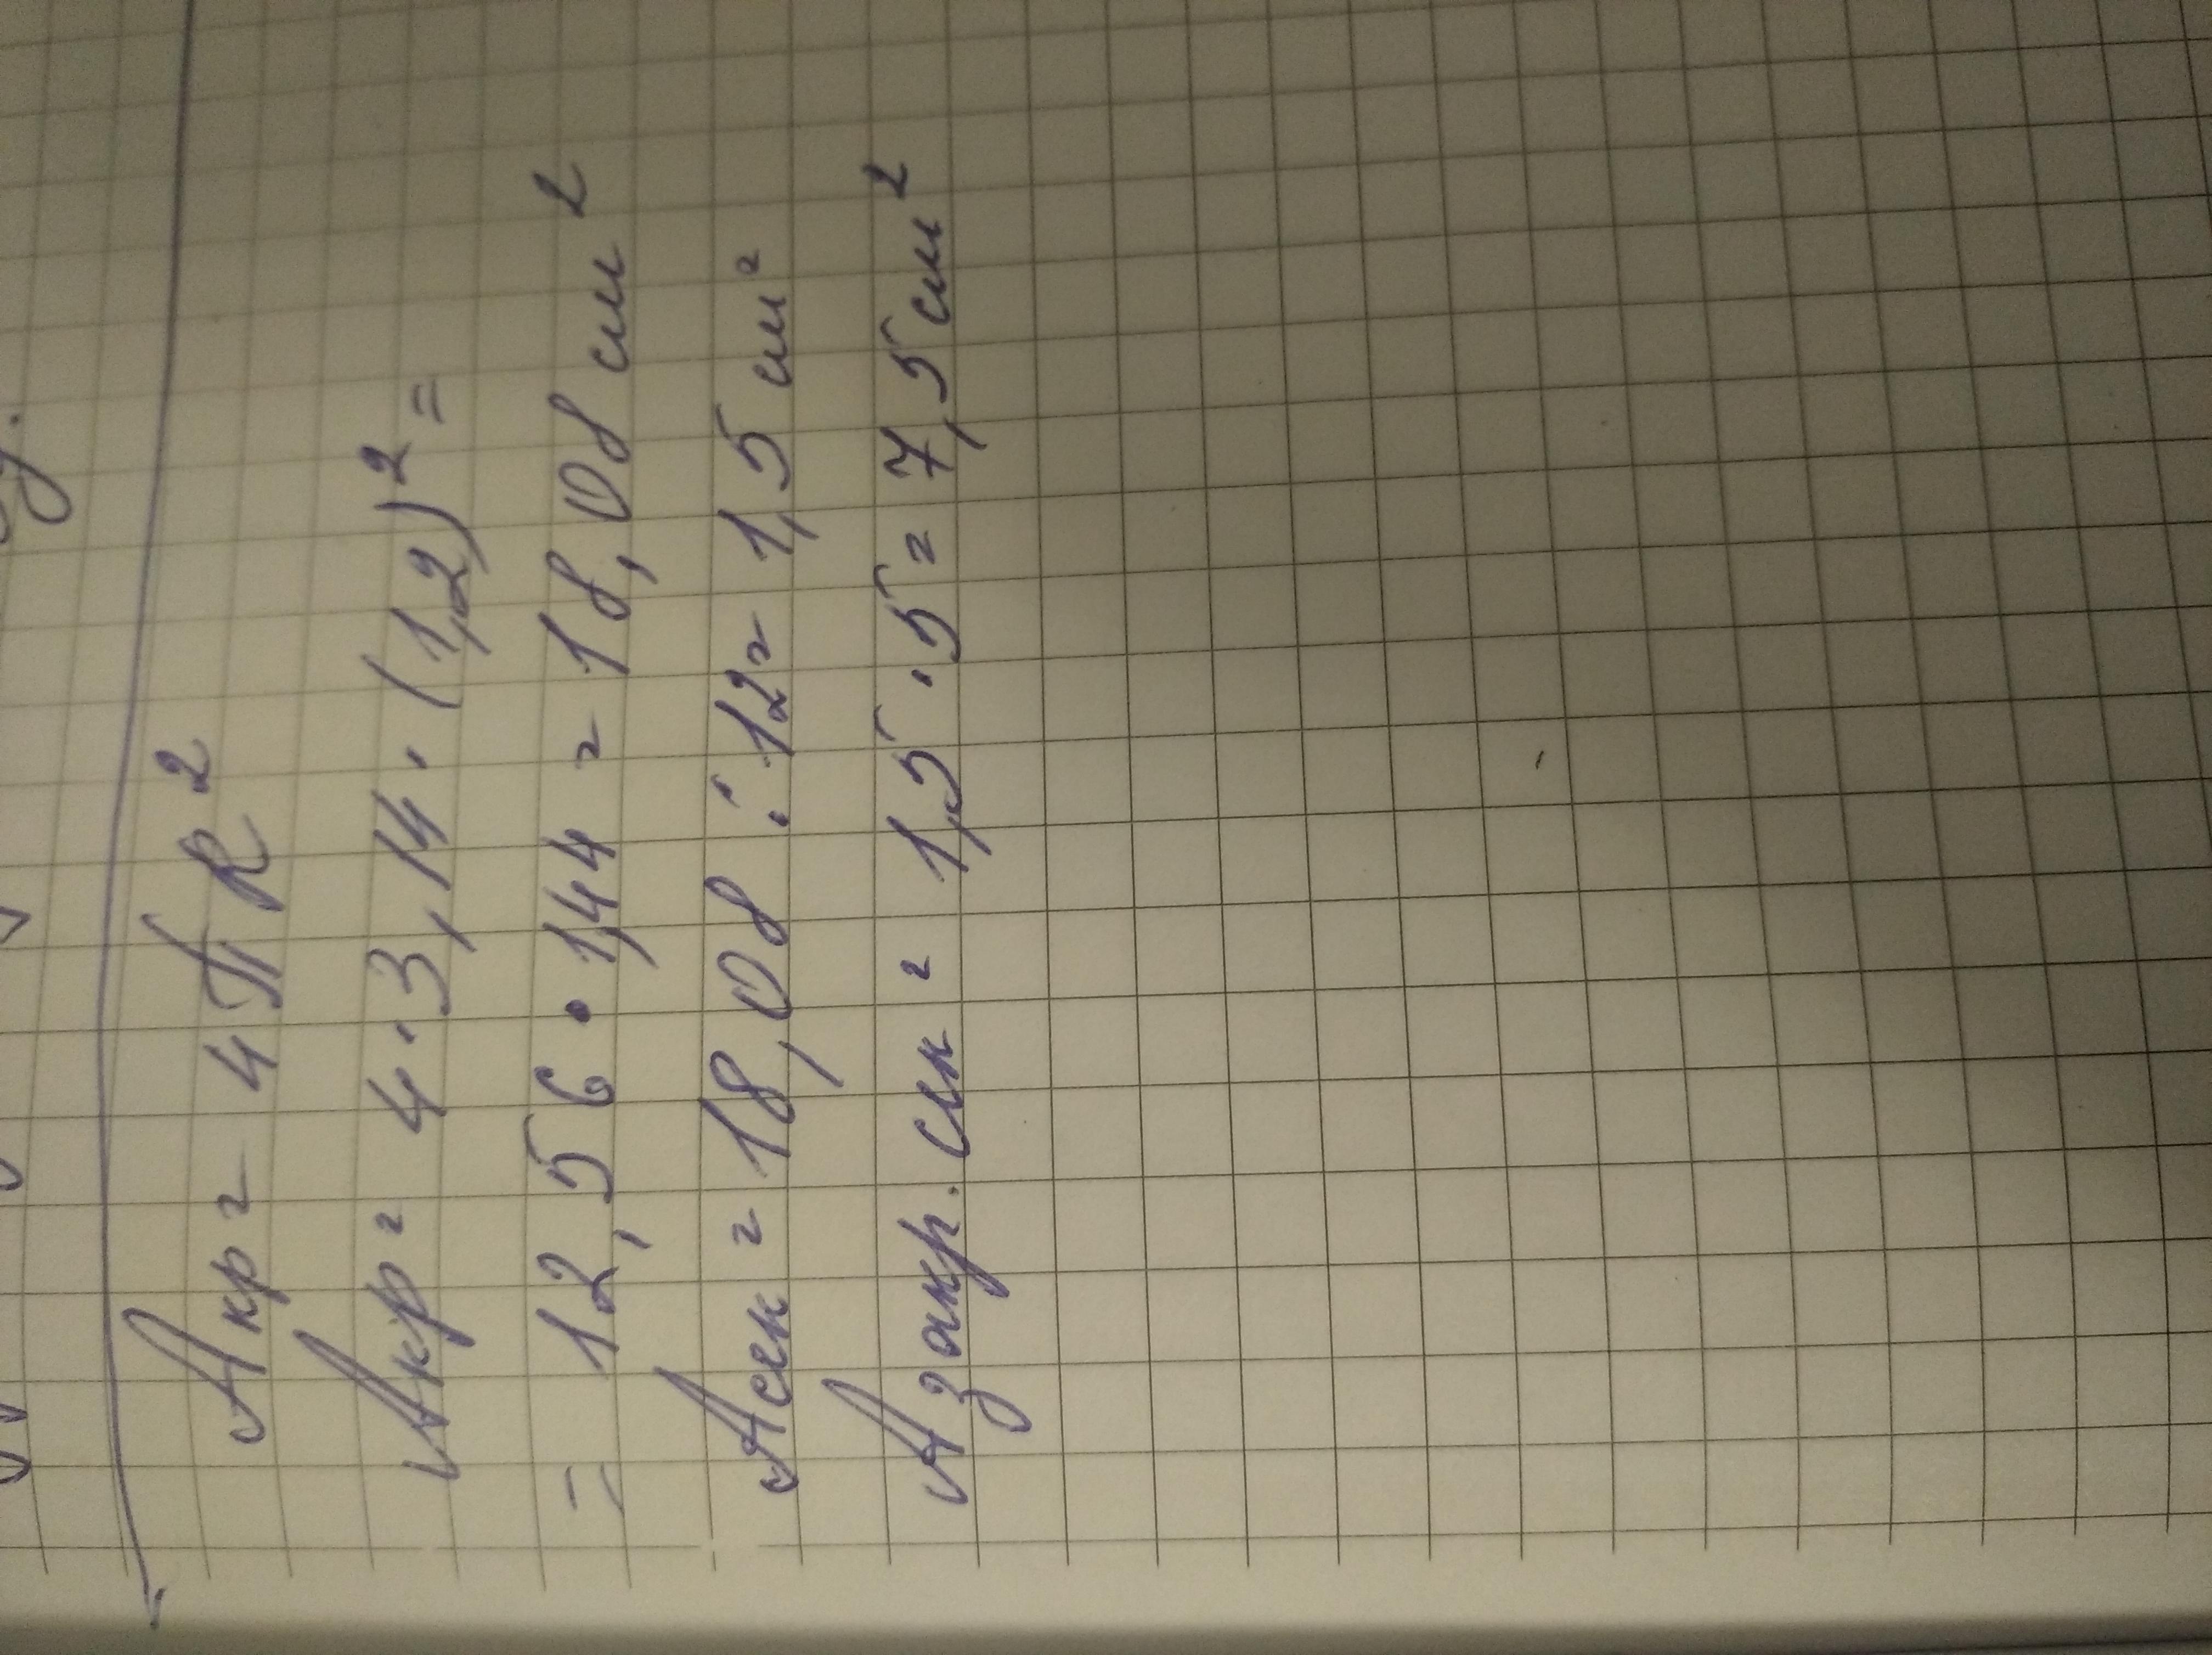 Акр = 4ПR²
Акр = 4·3,14·(1,2)² =
= 12,56·1,44 = 18,08 см²
Асек = 18,08 : 12 = 1,5 см²
Азакр.сек = 1,5·5 = 7,5 см²